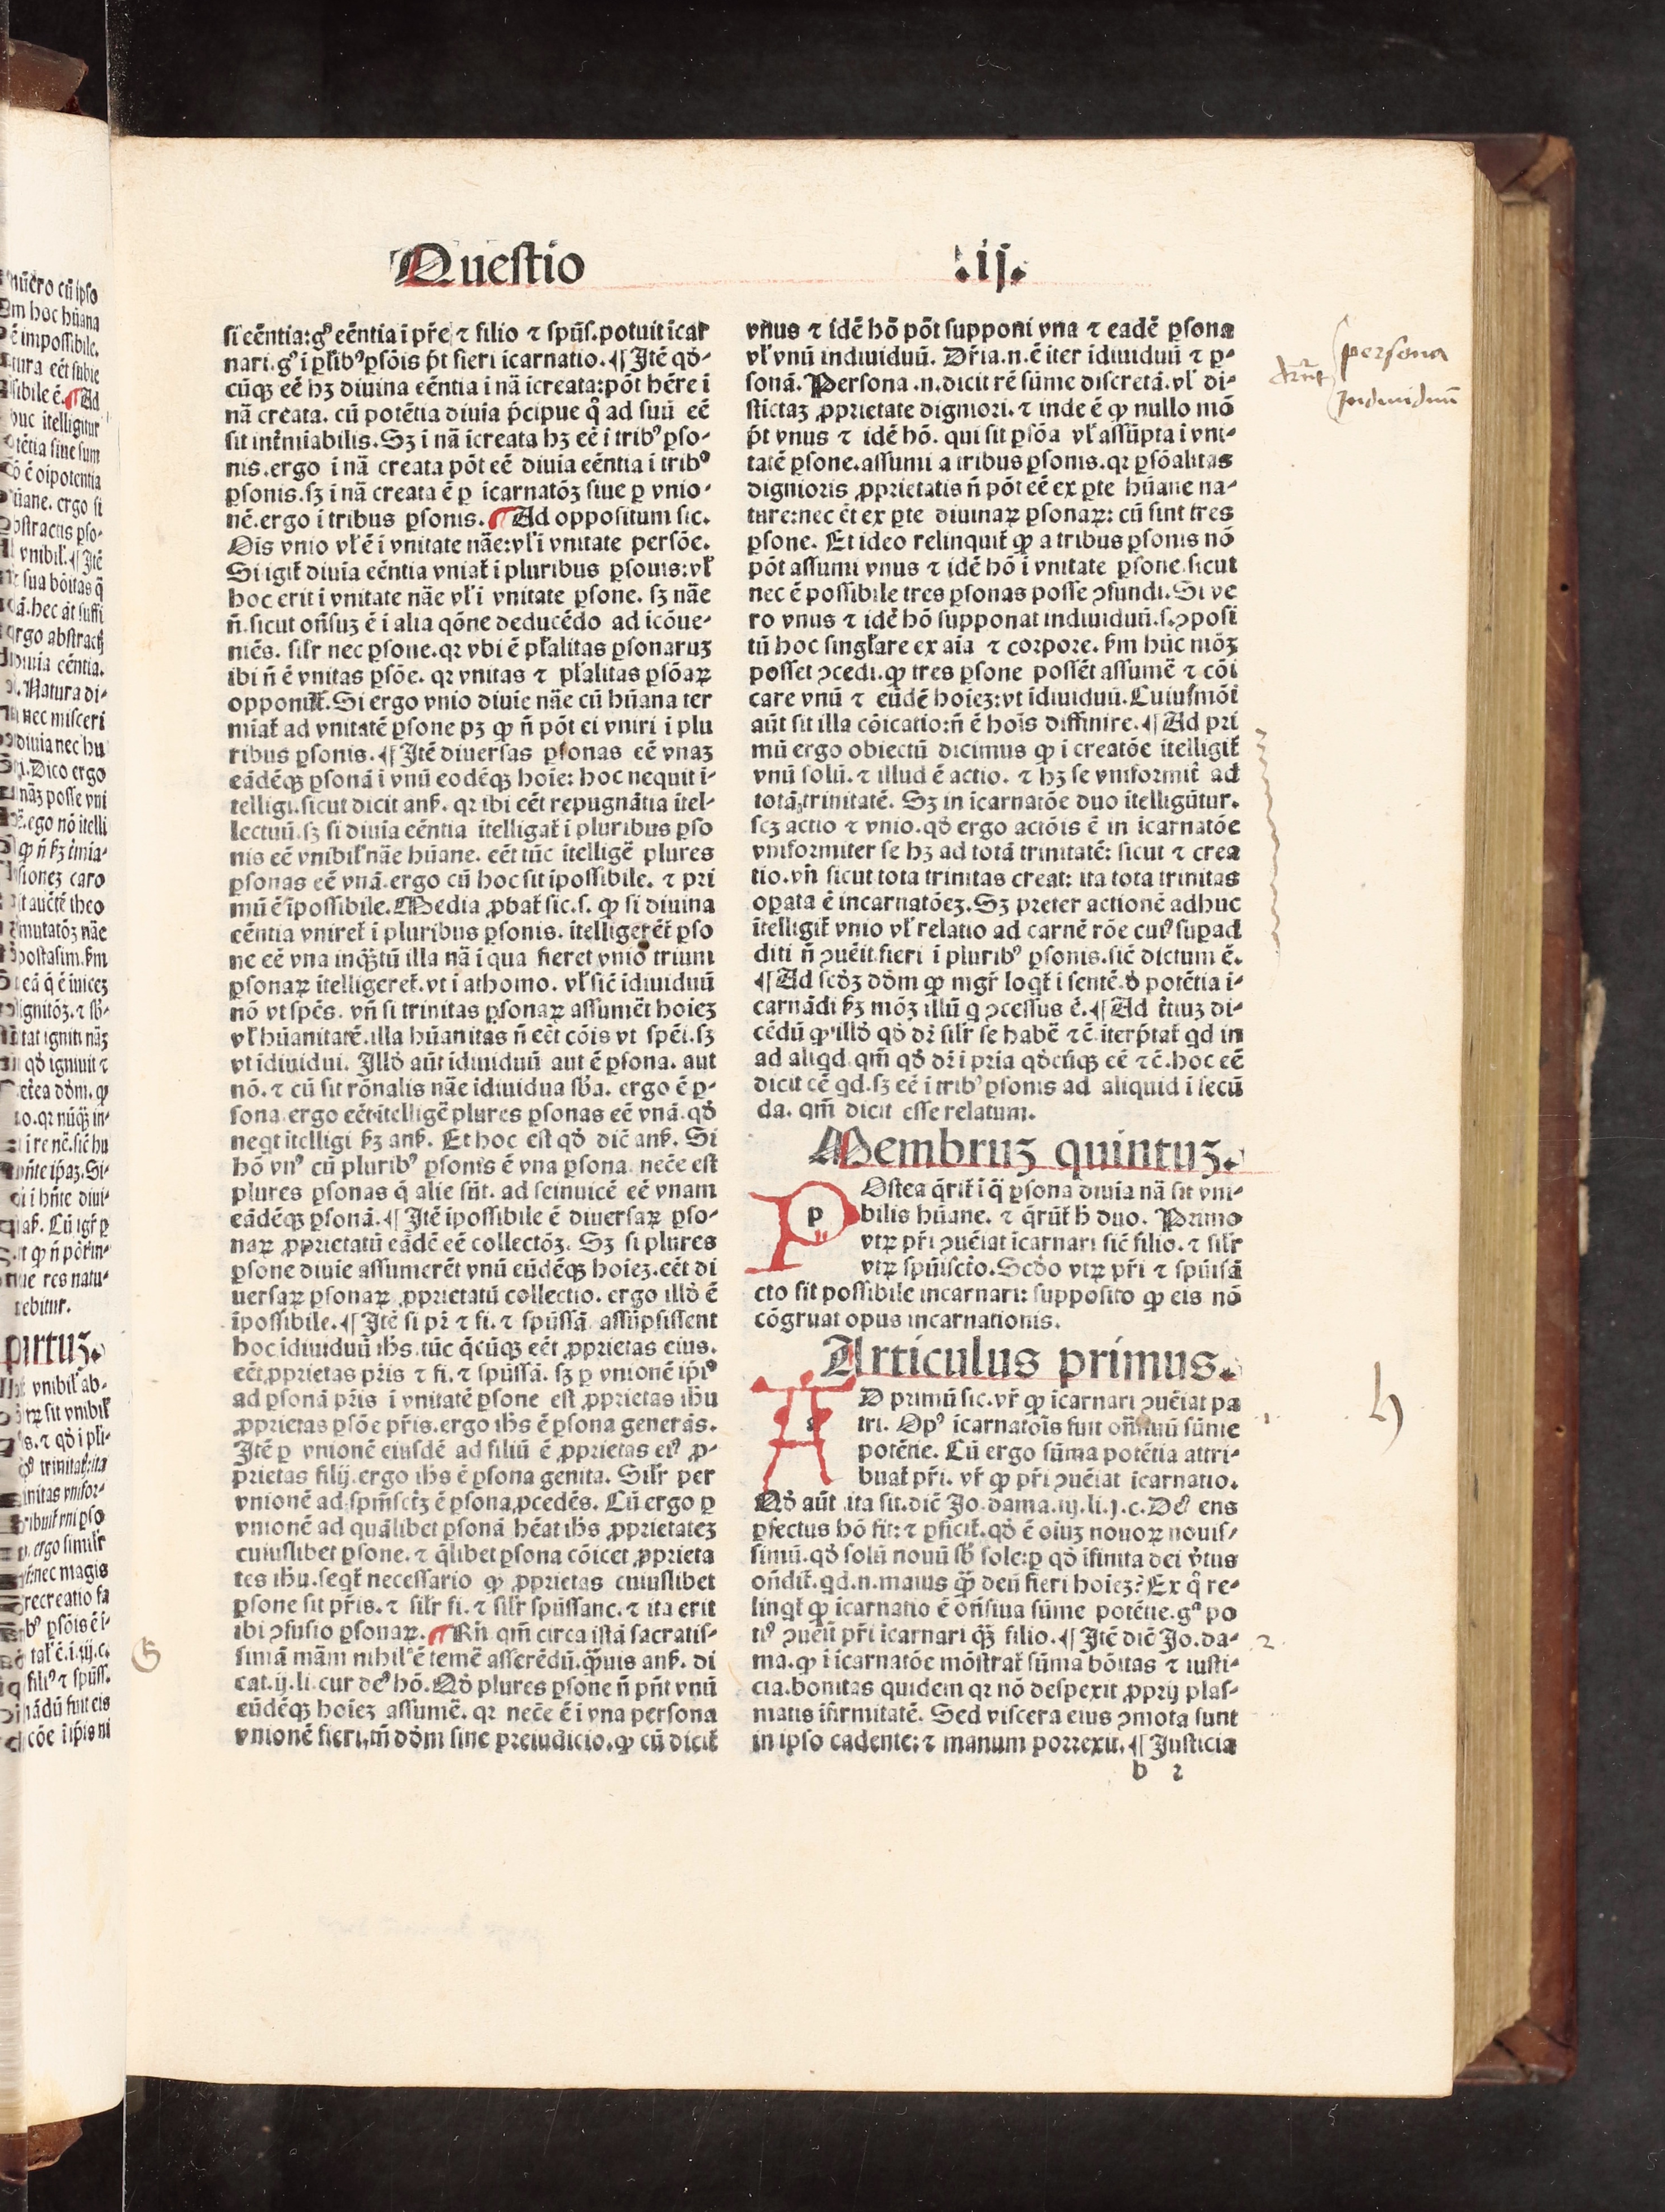 Questio .ij.
si eēntia: gͦ eēntia i pr̄e ⁊ filio ⁊ spūs. potuit icar
nari. gͦ i pl̄ibꝰ ꝑsōis p̄t fieri icarnatio. ¶ Itē qd̄-
cūqꝫ eē hꝫ diuina eēntia i nā icreata: pōt hēre i
nā creata. cū potētia diuia p̄cipue qͦ ad suū eē
sit int̄miabilis. Sꝫ i nā icreata hꝫ eē i tribꝰ ꝑso-
nis. ergo i nā creata pōt eē diuia eēntia i tribꝰ
ꝑsonis. sꝫ i nā creata ē ꝑ icarnatōꝫ siue ꝑ vnio-
nē. ergo i tribus ꝑsonis. ¶ Ad oppositum sic.
Ois vnio vl̄ ē i vnitate nāe: vl̄ i vnitate persōe.
Si igit̄ diuia eēntia vniat̄ i pluribus ꝑsonis: vl̄
hoc erit i vnitate nāe vl̄ i vnitate ꝑsone. sꝫ nāe
n̄. sicut on̄suꝫ ē i alia qōne deducēdo ad icōue-
niēs. sil̄r nec ꝑsone. qꝛ vbi ē pl̄alitas ꝑsonaruꝫ
ibi n̄ ē vnitas ꝑsōe. qꝛ vnitas ⁊ pl̄alitas ꝑsōaꝝ
opponūt̄. Si ergo vnio diuie nāe cū hūana ter
miat̄ ad vnitatē ꝑsone pꝫ ꝙ n̄ pōt ei vniri i plu
ribus ꝑsonis. ¶ Itē diuersas ꝑsonas eē vnaꝫ
eādēqꝫ ꝑsonā i vnū eodēqꝫ hoie: hoc nequit i-
telligi. sicut dicit anẜ. qꝛ ibi eēt repugnātia itel-
lectuū. sꝫ si diuia eēntia itelligat̄ i pluribus ꝑso
nis eē vnibil̄ nāe hūane. eēt tūc itelligē plures
ꝑsonas eē vnā. ergo cū hoc sit ipossibile. ⁊ pri
mū ē ipossibile. Media ꝓbat̄ sic. s. ꝙ si diuina
eēntia vniret̄ i pluribus ꝑsonis. itelligerēt̄ ꝑso
ne eē vna inqͣꝫtū illa nā i qua fieret vnio trium
ꝑsonaꝝ itelligeret̄. vt i athomo. vl̄ sic̄ idiuiduū
nō vt spēs. vn̄ si trinitas ꝑsonaꝝ assumēt hoieꝫ
vl̄ hūanitatē. illa hūanitas n̄ eēt cōis vt spēi. sꝫ
vt idiuidui. Illd̄ aūt idiuiduū aut ē ꝑsona. aut
nō. ⁊ cū sit rōnalis nāe idiuidua sb̄a. ergo ē ꝑ-
sona. ergo eēt itelligē plures ꝑsonas eē vnā. qd̄
neqt itelligi ẜꝫ anẜ. Et hoc est qd̄ dic̄ anẜ. Si
hō vnꝰ cū pluribꝰ ꝑsonis ē vna ꝑsona. nec̄e est
plures ꝑsonas q̄ alie sūt. ad seinuicē eē vnam
eādēqꝫ ꝑsonā. ¶ Itē ipossibile ē diuersaꝝ ꝑso-
naꝝ ꝓprietatū eādē eē collectōꝫ. Sꝫ si plures
ꝑsone diuie assumerēt vnū eūdēqꝫ hoieꝫ. eēt di
uersaꝝ ꝑsonaꝝ ꝓprietatū collectio. ergo illd̄ ē
ipossibile. ¶ Itē si pꝛ̄ ⁊ fi. ⁊ spūssā. assūpsissent
hoc idiuiduū ih̄s. tūc q̄cūqꝫ eēt ꝓprietas eius.
eēt ꝓprietas pr̄is ⁊ fi. ⁊ spūssā. sꝫ ꝑ vnionē ip̄iꝰ
ad ꝑsonā pr̄is i vnitatē ꝑsone est ꝓprietas ih̄u
ꝓprietas ꝑsōe pr̄is. ergo ih̄s ē ꝑsona generās.
Itē ꝑ vnionē eiusdē ad filiū ē ꝓprietas eiꝰ ꝓ-
prietas filij. ergo ih̄s ē ꝑsona genita. Sil̄r per
vnionē ad spm̄sctꝫ ē ꝑsona ꝓcedēs. Cū ergo ꝑ
vnionē ad quālibet ꝑsonā hēat ih̄s ꝓprietateꝫ
cuiuslibet ꝑsone. ⁊ q̄libet ꝑsona cōicet ꝓprieta
tes ih̄u. seqt̄ necessario ꝙ ꝓprietas cuiuslibet
ꝑsone sit pr̄is. ⁊ sil̄r fi. ⁊ sil̄r spūssanc. ⁊ ita erit
ibi ꝯfusio ꝑsonaꝝ. ¶ Rn̄ qm̄ circa istā sacratis-
simā mām nihil̄ ē temē asserēdū. qͣꝫuis anẜ. di
cat. ij. li. cur deꝰ hō. Qd̄ plures ꝑsone n̄ pn̄t vnū
eūdēqꝫ hoieꝫ assumē. qꝛ nec̄e ē i vna persona
vnionē fieri. tn̄ dd̄m sine preiudicio. ꝙ cū dicit̄
vnus ⁊ idē hō pōt supponi vna ⁊ eadē ꝑsona
vl̄ vnū indiuiduū. Dr̄ia. n. ē iter idiuiduū ⁊ ꝑ-
sonā. Persona .n. dicit rē sūme discretā. vl̄ di-
stictaꝫ ꝓprietate digniori. ⁊ inde ē ꝙ nullo mō
p̄t vnus ⁊ idē hō. qui sit ꝑsōa vl̄ assūpta i vni-
tatē ꝑsone. assumi a tribus ꝑsonis. qꝛ ꝑsōalitas
dignioris ꝓprietatis n̄ pōt eē ex ꝑte hūane na-
ture: nec ēt ex ꝑte diuinaꝝ ꝑsonaꝝ: cū sint tres
ꝑsone. Et ideo relinquit̄ ꝙ a tribus ꝑsonis nō
pōt assumi vnus ⁊ idē hō i vnitate ꝑsone. sicut
nec ē possibile tres ꝑsonas posse ꝯfundi. Si ve
ro vnus ⁊ idē hō supponat indiuiduū. s. ꝯposi
tū hoc singl̄are ex aia ⁊ corpore. ẜm hūc mōꝫ
posset ꝯcedi. ꝙ tres ꝑsone possēt assumē ⁊ cōi
care vnū ⁊ eūdē hoieꝫ: vt idiuiduū. Cuiusmōi
aūt sit illa cōicatio: n̄ ē hois diffinire. ¶ Ad pri
mū ergo obiectū dicimus ꝙ i creatōe itelligit̄
vnū solū. ⁊ illud ē actio. ⁊ hꝫ se vniformit̄ ad
totā trinitatē. Sꝫ in icarnatōe duo itelligūtur.
scꝫ actio ⁊ vnio. qd̄ ergo actōis ē in icarnatōe
vniformiter se hꝫ ad totā trinitatē: sicut ⁊ crea
tio. vn̄ sicut tota trinitas creat: ita tota trinitas
oꝑata ē incarnatōeꝫ. Sꝫ preter actionē adhuc
itelligit̄ vnio vl̄ relatio ad carnē rōe cuiꝰ suꝑad
diti n̄ ꝯuēit fieri i pluribꝰ ꝑsonis. sic̄ dictum ē.
¶ Ad scd̄ꝫ dd̄m ꝙ mgr̄ loqt̄ i sentē. d̄ potētia i-
carnādi ẜꝫ mōꝫ illū q ꝯcessus ē. ¶ Ad t̄tiuꝫ di-
cēdū ꝙ illd̄ qd̄ dꝛ̄ sil̄r se habē ⁊c̄. iterp̄tat̄ qd in
ad aliqd. qm̄ qd̄ dꝛ̄ i pria qd̄cūqꝫ eē ⁊c̄. hoc eē
dicit eē qd. sꝫ eē i tribꝰ ꝑsonis ad aliquid i secū
da. qm̄ dicit esse relatum.
Membruꝫ quintuꝫ.
POstea q̄rit̄ i qͣ ꝑsona diuia nā sit vni-
bilis hūane. ⁊ q̄rūt̄ h̄ duo. Primo
vtꝝ pr̄i ꝯuēiat icarnari sic̄ filio. ⁊ sil̄r
vtꝝ spūiscto. Scd̄o vtꝝ pr̄i ⁊ spūisā
cto sit possibile incarnari: supposito ꝙ eis nō
cōgruat opus incarnationis.
Articulus primus.
AD primū sic. vr̄ ꝙ icarnari ꝯuēiat pa
tri. Opꝰ icarnatōis fuit on̄siuū sūme
potētie. Cū ergo sūma potētia attri-
buat̄ pr̄i. vr̄ ꝙ pr̄i ꝯuēiat icarnatio.
Qd̄ aūt ita sit. dic̄ Jo. dama. iij. li. j. c. Deꝰ ens
ꝑfectus hō fit: ⁊ ꝑficit̄. qd̄ ē oiuꝫ nouoꝝ nouis-
simū. qd̄ solū nouū sb̄ sole: ꝑ qd̄ ifinita dei v̄tus
on̄dit̄. qd. n. maius qͣꝫ deū fieri hoieꝫ? Ex qͦ re-
linqt̄ ꝙ icarnatio ē on̄siua sūme potētie. gͦ po
tiꝰ ꝯuēit pr̄i icarnari qͣꝫ filio. ¶ Itē dic̄ Jo. da-
ma. ꝙ i icarnatōe mōstrat̄ sūma bōitas ⁊ iusti-
cia. bonitas quidem qꝛ nō despexit ꝓprij plas-
matis ifirmitatē. Sed viscera eius ꝯmota sunt
in ipso cadente: ⁊ manum porrexit. ¶ Justicia
b 2
persona
Indiuiduū
1.
2.